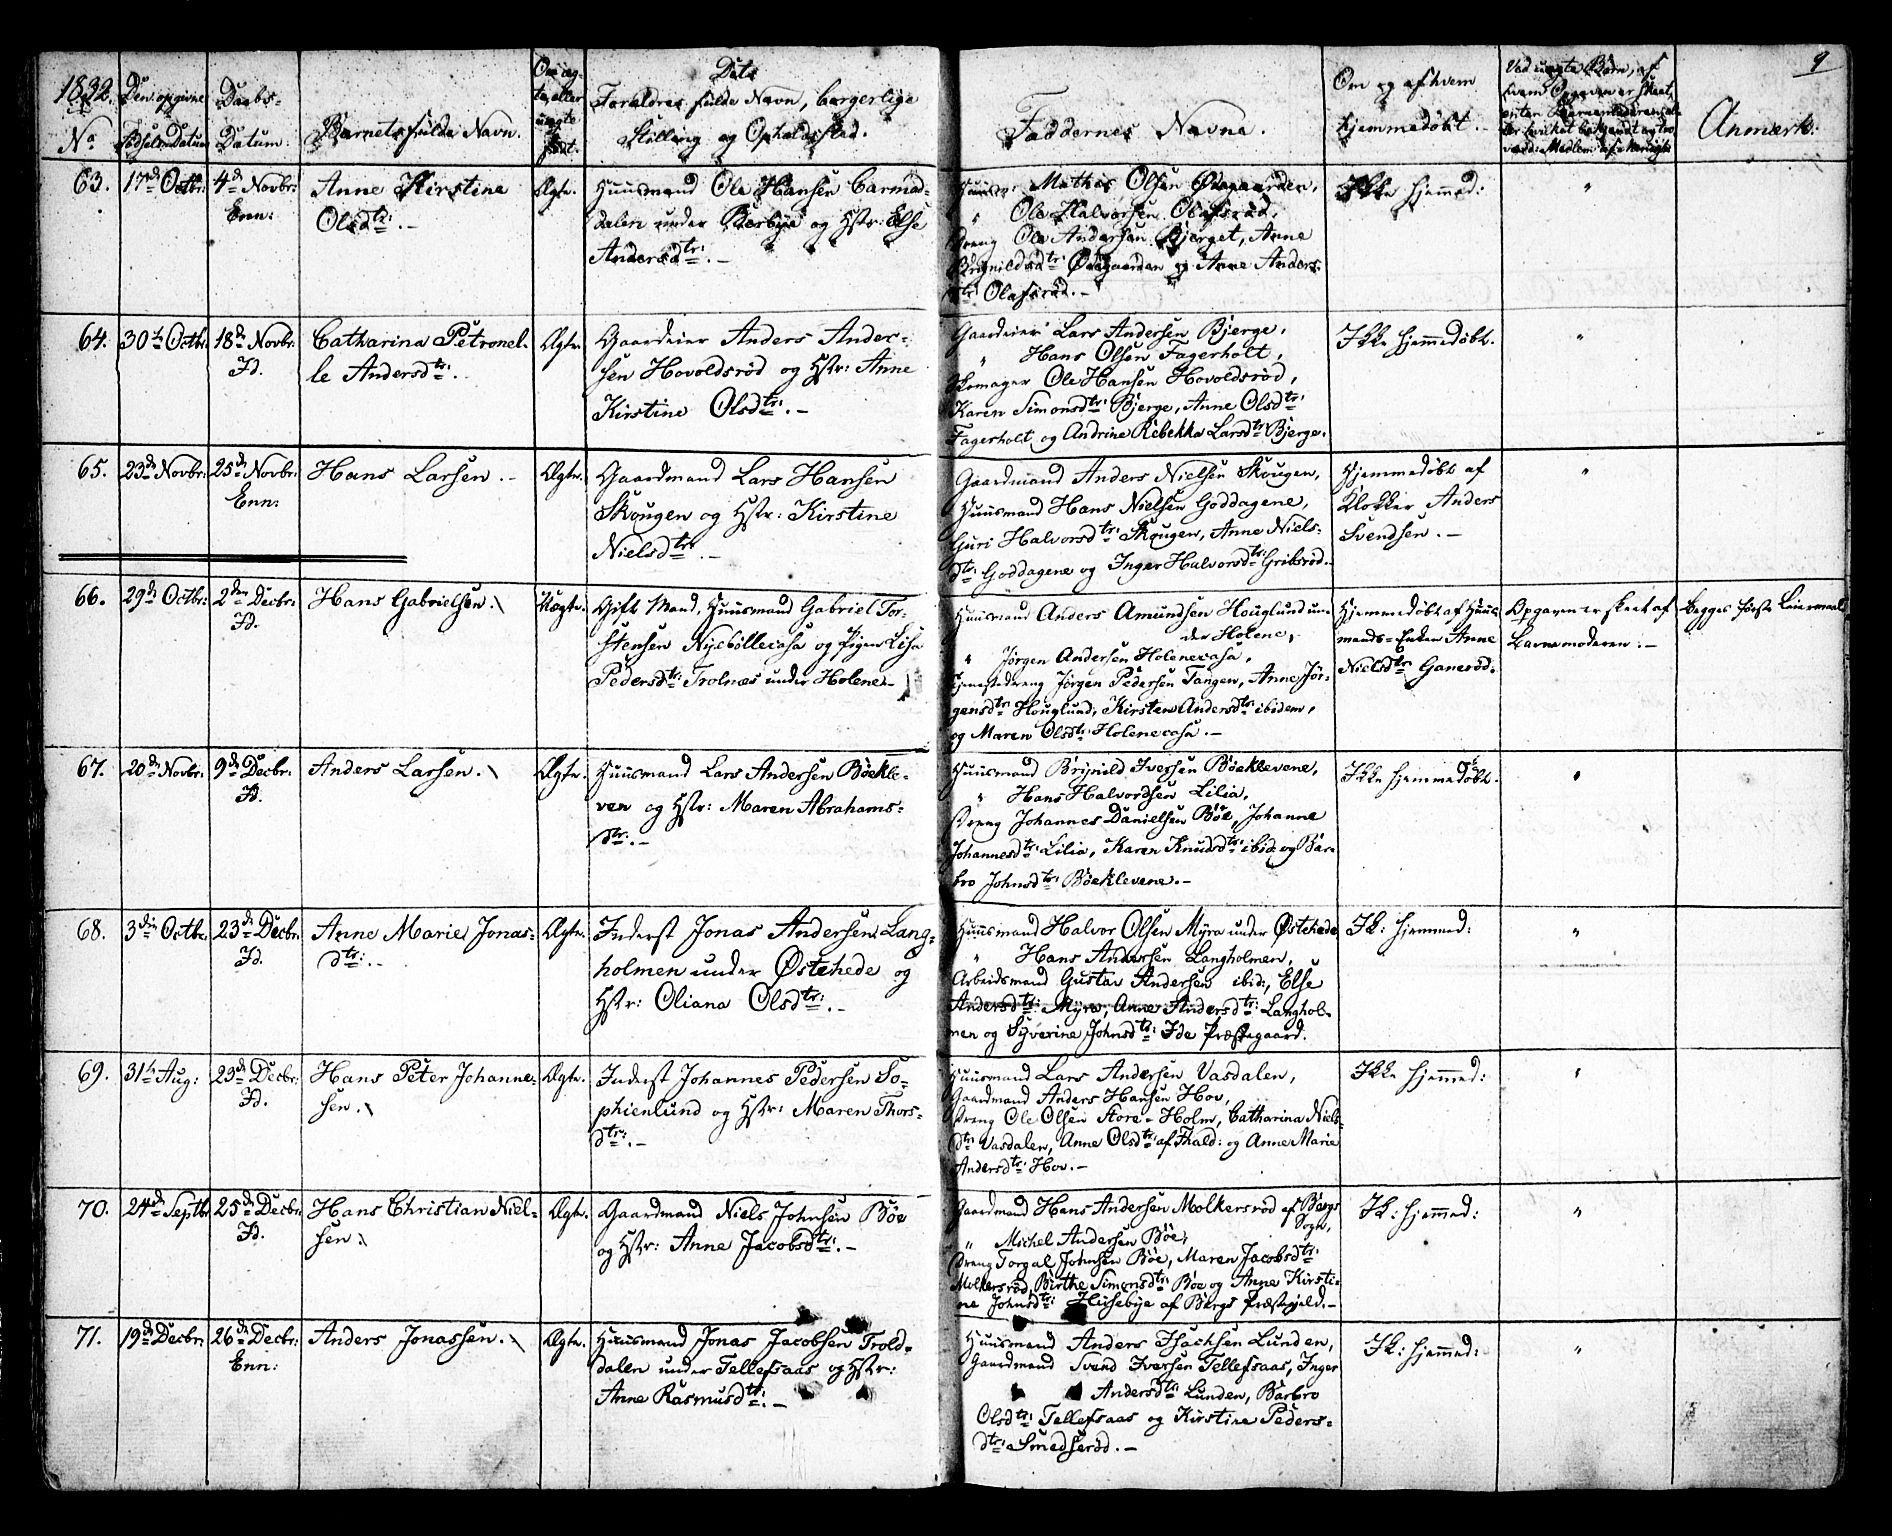 1832.
No
Den opgivne
Fødsels Datum
Daabs-
Datum:
Barnets fulde Navn.
Om æg-
te, eller
uægte
født.
Dets
Forældres fulde Navn, borgerlige
Stilling og Opholdssted.
Faddernes Navne.
Om og af hvem
hjemmedøbt.
Ved uægte Børn, af
hvem Opgaven er skeet,
enten Barnemoderen el-
ler hvilket bekjendt og tro-
værd: Medlem af Menigh:
Anmærk:
9
63.
17de Octbr:
4de Novbr:
Enn:
Anne Kirstine
Olsdtr: -
Ægte.
Huusmand Ole Hansen
dalen under Bærbye og Hstr: Else
Andersdtr: . -
Huusm: Mathis Olsen Ødegaarden,
" Ole Halvorsen Olafsrød,
Dreng Ole Andersen Bjerget, Anne
Brynildsdtr: Ødegaarden og Anne Anders-
dtr: Olafsrød. -
Ikke hjemmed:
"
64.
30te Octbr:
18de Novbr:
Id.
Catharina Petronel-
le Andersdtr: . -
Ægte.
Gaardeier Anders Ander-
sen Hovoldsrød og Hstr: Anne
Kirstine Olsdtr: . -
Gaardeier Lars Andersen Bjerge,
" Hans Olsen Fagerholt,
Skomager Ole Hansen Hovoldsrød,
Karen Simonsdtr: Bjerge, Anne Olsdtr:
Fagerholt og Andrine Rebekka Larsdtr: Bjerge.
Ikke hjemmedøbt.
"
65.
23de Novbr:
25de Novbr:
Enn:
Hans Larsen. -
Ægte.
Gaardmand Lars Hansen
Skougen og Hstr: Kirstine
Nielsdtr: . -
Gaardmand Anders Nielsen Skougen,
Huusmand Hans Nielsen Goddagene,
Guri Halvorsdtr: Skougen, Anne Niels-
dtr: Goddagene og Inger Halvorsdtr: Gribsrød.
Hjemmedøbt af
Klokker Anders
Svendsen. -
"
66.
29de Octbr:
2den Decbr:
Id.
Hans Gabrielsen.
Uægte.
Gift Mand, Huusmand Gabriel Tor-
stensen Nyebøllecasa og Pigen Lisa
Pedersdtr: Trolnæs under Holene -
Huusmand Anders Amundsen Houglund un-
der Holene,
" Jørgen Andersen Holenecasa,
Tjenestedreng Jørgen Pedersen Tangen, Anne Jør-
gensdtr: Houglund, Kirsten Andersdtr: ibidem,
og Maren Olsdtr: Holenecasa. -
Hjemmedøbt af Huus-
mands-Enken Anne
Nielsdtr: Ganerød.
Opgaven er skeet af
Barnemoderen: -
Begges første Leiermaal
67.
20de Novbr:
9de Decbr:
Id.
Anders Larsen.
Ægte.
Huusmand Lars Andersen Bøekle-
ven og Hstr: Maren Abrahams-
dtr: . -
Huusmand Brynild Iversen Bøeklevene,
" Hans Halvordsen Lilia,
Dreng Johannes Danielsen Bøe, Johanne
Johannesdtr: Lilia, Karen Knudsdtr: ibid: og Bar-
bro Johnsdtr: Bøeklevene. -
Ikke hjemmedøbt.
"
68.
3die Octbr:
23de Decbr:
Id.
Anne Marie Jonas-
dtr: . -
Ægte.
Inderst Jonas Andersen Lang-
holmen under Østehede og
Hstr: Oliana Olsdtr: . -
Huusmand Halvor Olsen Myra under Østehede
" Hans Andersen Langholmen,
Arbeidsmand Gustav Andersen ibid:, Else
Andersdtr: Myra, Anne Andersdtr: Langhol-
men og Syverine Johnsdtr: Ide Præstegaard.
Ik: hjemmed:
"
69.
31te Aug:
23de Decbr:
Id.
Hans Peter Johanne-
sen.
Ægte.
Inderst Johannes Pedersen So-
phienlund og Hstr: Maren Thors-
dtr: . -
Huusmand Lars Andersen Vasdalen,
Gaardmand Anders Hansen Hov,
Dreng Ole Olsen Store-Holm, Catharina Niels-
dtr: Vasdalen, Anne Olsdtr: af Fhald: og Anne Marie
Andersdtr: Hov. -
Ikke hjemmed:
"
70.
24de Septbr:
25de Decbr:
Id.
Hans Christian Niel-
sen.
Ægte.
Gaardmand Niels Johnsen Bøe
og Hstr: Anne Jacobsdtr: . -
Gaardmand Hans Andersen Molkersrød af Bergs
Sogn,
" Michel Andersen Bøe,
Dreng Torgal Johnsen Bøe, Maren Jacobsdtr:
Molkersrød, Birthe Simonsdtr: Bøe og Anne Kirsti-
ne Johnsdtr: Husebye af Bergs Præstegjeld. -
Ik: hjemmed:
"
71.
19de Decbr:
26de Decbr:
Enn:
Anders Jonassen.
Ægte.
Huusmand Jonas Jacobsen Trold-
dalen under Tellefsaas og Hstr:
Anne Rasmusdtr: . -
Huusmand Anders Isachsen Lunden,
Gaardmand Svend Iversen Tellefsaas, Inger
Andersdtr: Lunden, Barbro
Olsdtr: Tellefsaas og Kirstine Peders-
dtr: Smedserød. -
Ik: hjemmed:
"